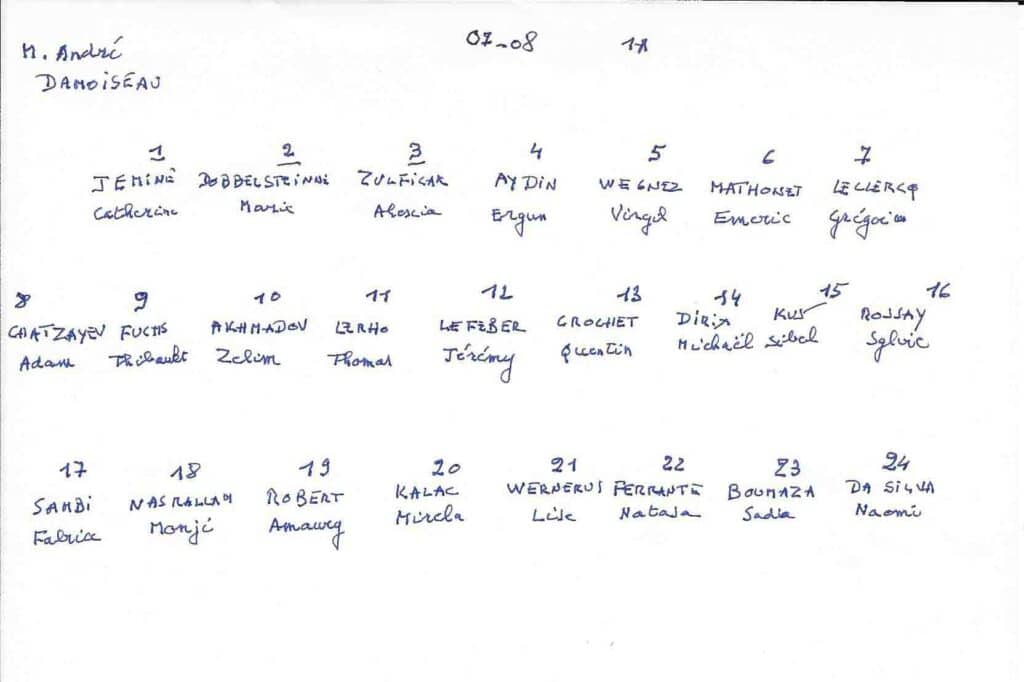 M. André 07-08 1A
DAMOISEAU
1 2 3 4 5 6 7
JEMINÉ DOBBELSTEINN ZULFICAR AYDIN WEGNEZ MATHONET LECLERCQ
Catherine Marie Alessia Ergun Virgil Emeric Grégoire
8 9 10 11 12 13 14 15 16
CHATZAYEV FUCHS AKHMADOV LERHO LEFEBER CROCHET DIRIX KUS ROSSAY
Adam Thibault Zelim Thomas Jérémy Quentin Michaël Sibel Sylvie
17 18 19 20 21 22 23 24
SAMBI NASRALLAH ROBERT KALAC WERNERUS FERRANTE BOUMAZA DA SILVA
Fabrice Monji Amaury Mirela Lise Natasa Sadia Naomi